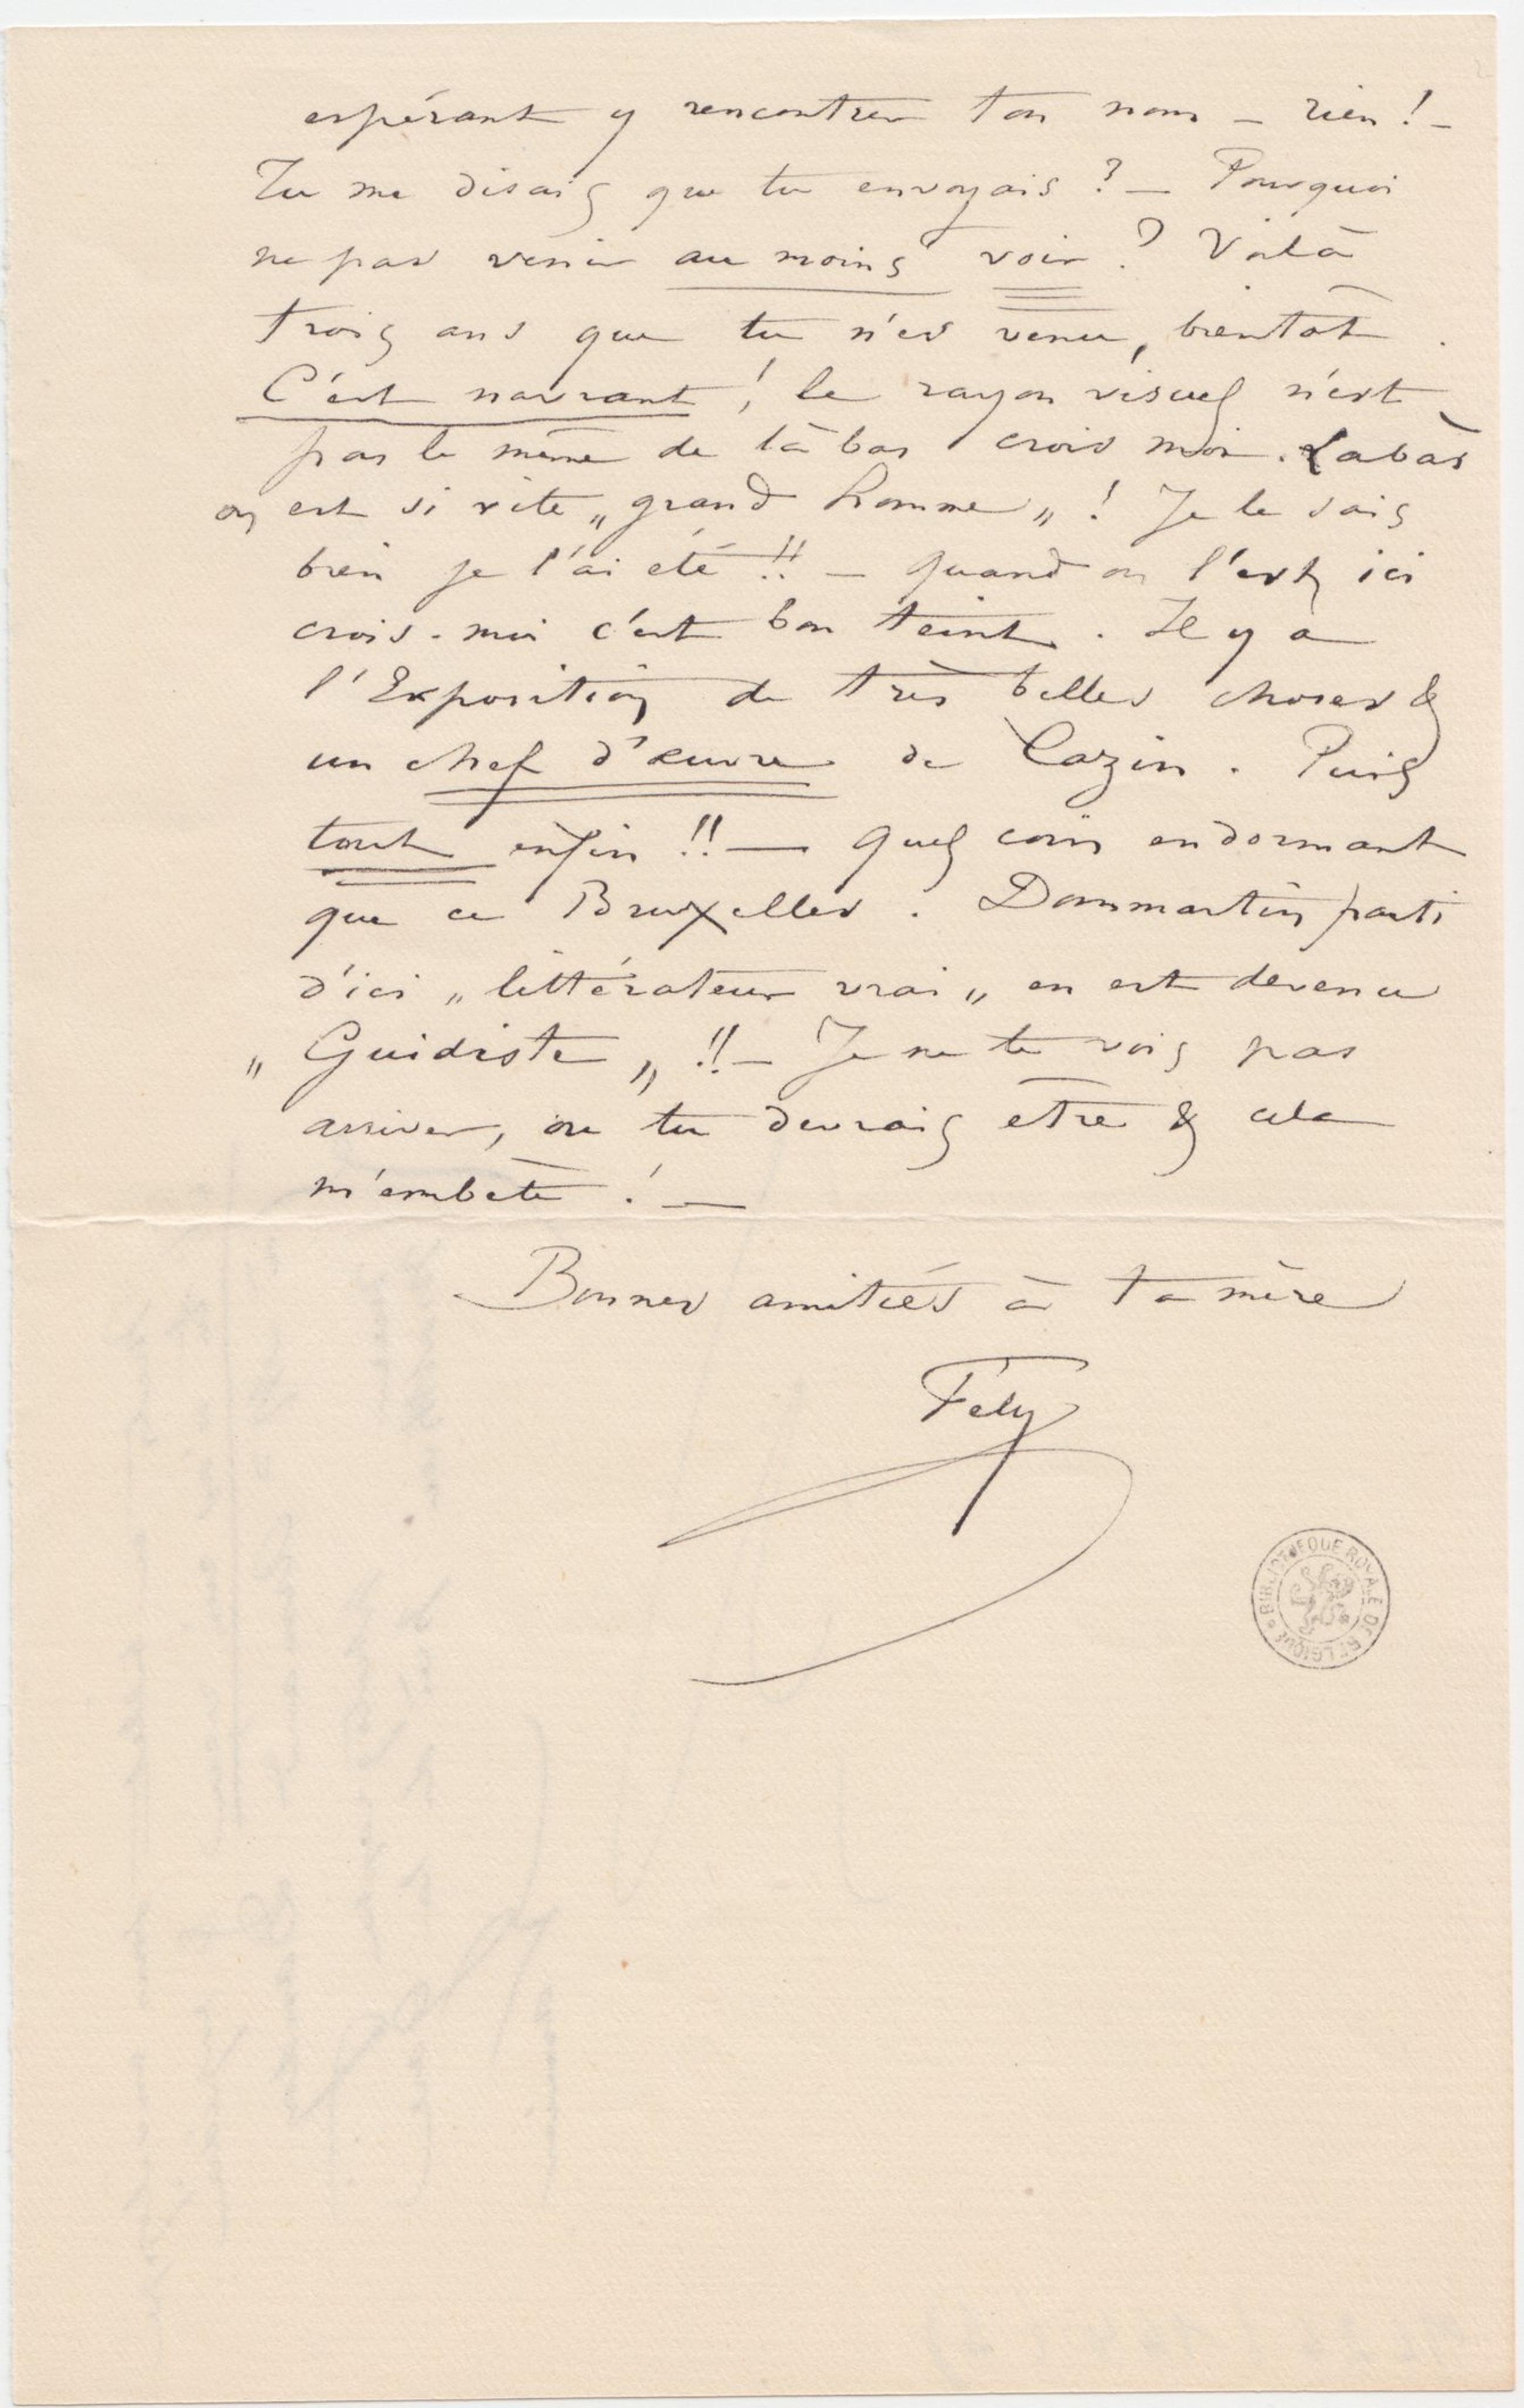 espérant y rencontrer ton nom — rien ! —
Tu me disais que tu envoyais ? — Pourquoi
ne pas venir au moins voir ? Voilà
trois ans que tu n'es venu, bientôt.
C'est navrant ! le rayon visuel n'est
pas le même de là bas crois moi. Labàs
on est si vite „ grand homme „ ! Je le sais
bien je l'ai été !! — quand on l'est ici
crois-moi c'est bon teint. Il y a
l'Exposition de très belles choses &
un chef d'œuvre de Cazin. Puis
tout enfin !! — quel coin endormant
que ce Bruxelles. Dommartin parti
d'ici „ littérateur vrai „ en est devenu
„ Guidiste „ !! — Je ne te vois pas
arriver, ou tu devrais etre & cela
m'embête ! —
Bonnes amitiés à ta mère
Fély
BIBLIOTHEQUE ROYALE DE BELGIQUE